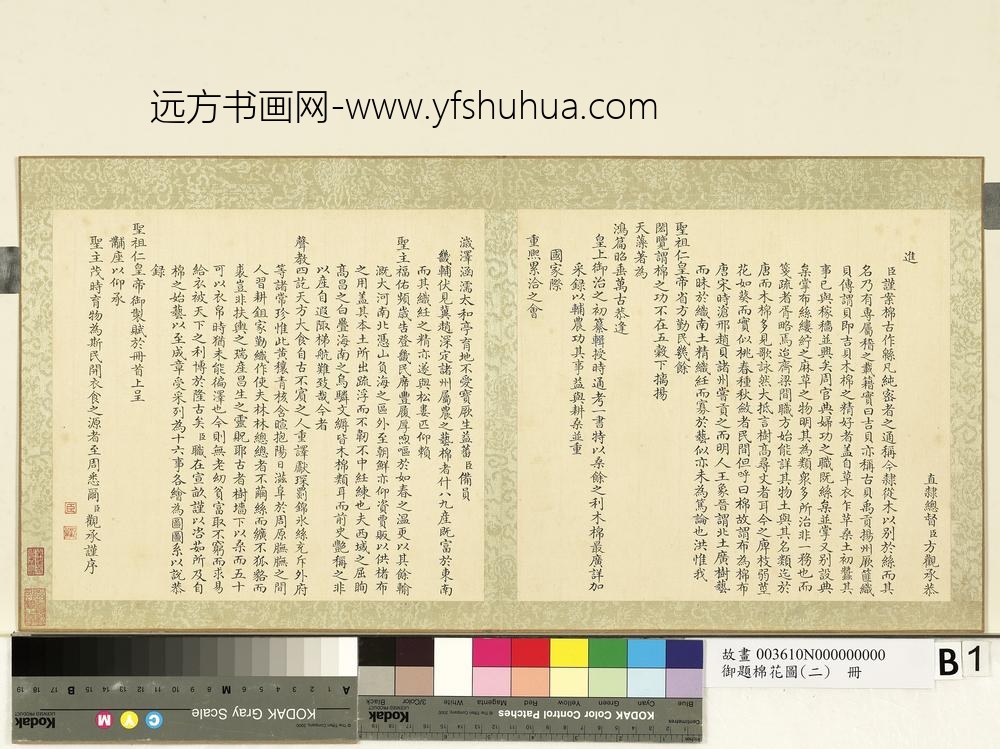 远方书画网-www.yfshuhua.com
直隸總督臣方觀承恭
進
臣謹案棉古作緜凡純密者之通稱今隸從木以別於絲而其
名乃有專屬稽之載籍實曰吉貝亦稱古貝禹貢揚州厥篚織
貝傳謂貝即吉貝木棉之精好者蓋自草衣乍革桑土初蠶其
事已與稼穡並興矣周官典婦功之職既絲枲並掌又別設典
枲掌布緦縷紵之麻草之物明其為類衆多所治非一務也而
箋疏者胥略焉迨齊梁間職方始能詳其物土與其名類迄於
唐而木棉多見歌詠然大抵言樹高尋丈者耳今之庳枝弱莖
花如葵而實似桃春種秋斂者民間但呼曰棉花故謂布為棉布
唐宋時滄邢趙貝諸州嘗貢之而明人王象晉謂北土廣樹藝
而昧於織南土精織紝而寡於藝似亦未為篤論也洪惟我
聖祖仁皇帝省方勤民幾餘
閎覽謂棉之功不在五穀下摛揚
天藻著為
鴻篇昭垂萬古恭逢
皇上御治之初纂輯授時通考一書特以桑餘之利木棉最廣詳加
采錄以輔農功其事益與耕桑並重
國家際
重熙累洽之會
濊澤涵濡太和亭育地不愛寶厥生益蕃臣備員
畿輔伏見冀趙深定諸州屬農之藝棉者什八九產既富於東南
而其織紝之精亦遂與松婁匹仰賴
聖主福佑頻歲告登畿民席豐履厚嘔喣於如春之溫更以其餘輸
溉大河南北憑山負海之區外至朝鮮亦仰資賈販以供楮布
之用蓋其本土所出疏浮而不韌不中紝練也夫西域之屈眴
高昌之白疊海南之烏驎文縟皆木棉類耳而前史艷稱之非
以產自遐陬梯航難致哉今者
聲教四訖天方大食自古不賓之人重譯獻琛罽錦氷絲充斥外府
等諸常珍惟此黃穰青核含暄抱陽日滋阜於周原膴膴之間
人習耕鉏家勤織作使夫林林總總者不繭絲而纊不狐貉而
裘豈非扶輿之瑞產昌生之靈貺耶古者樹墻下以桑而五十
可以衣帛時猶未能徧澤也今則無老幼貧富取不窮而求易
給衣被天下之利博於隆古矣臣職在宣畝謹以咨茹所及自
棉之始藝以至成章受采列為十六事各繪為圖圖系以說恭
錄
聖祖仁皇帝御製賦於冊首上呈
黼座以仰承
聖主茂時育物為斯民開衣食之源者至周悉爾臣觀承謹序
故畫 003610N000000000
御題棉花圖(二) 冊
B 1
KODAK Gray Scale
C Y M
Kodak
A 1 2 3 4 5 6 M 8 9 10 11 12 13 14 15 B 17 18 19
KODAK Color Control Patches
Blue Cyan Green Yellow Red Magenta White 3/Color Black
Kodak